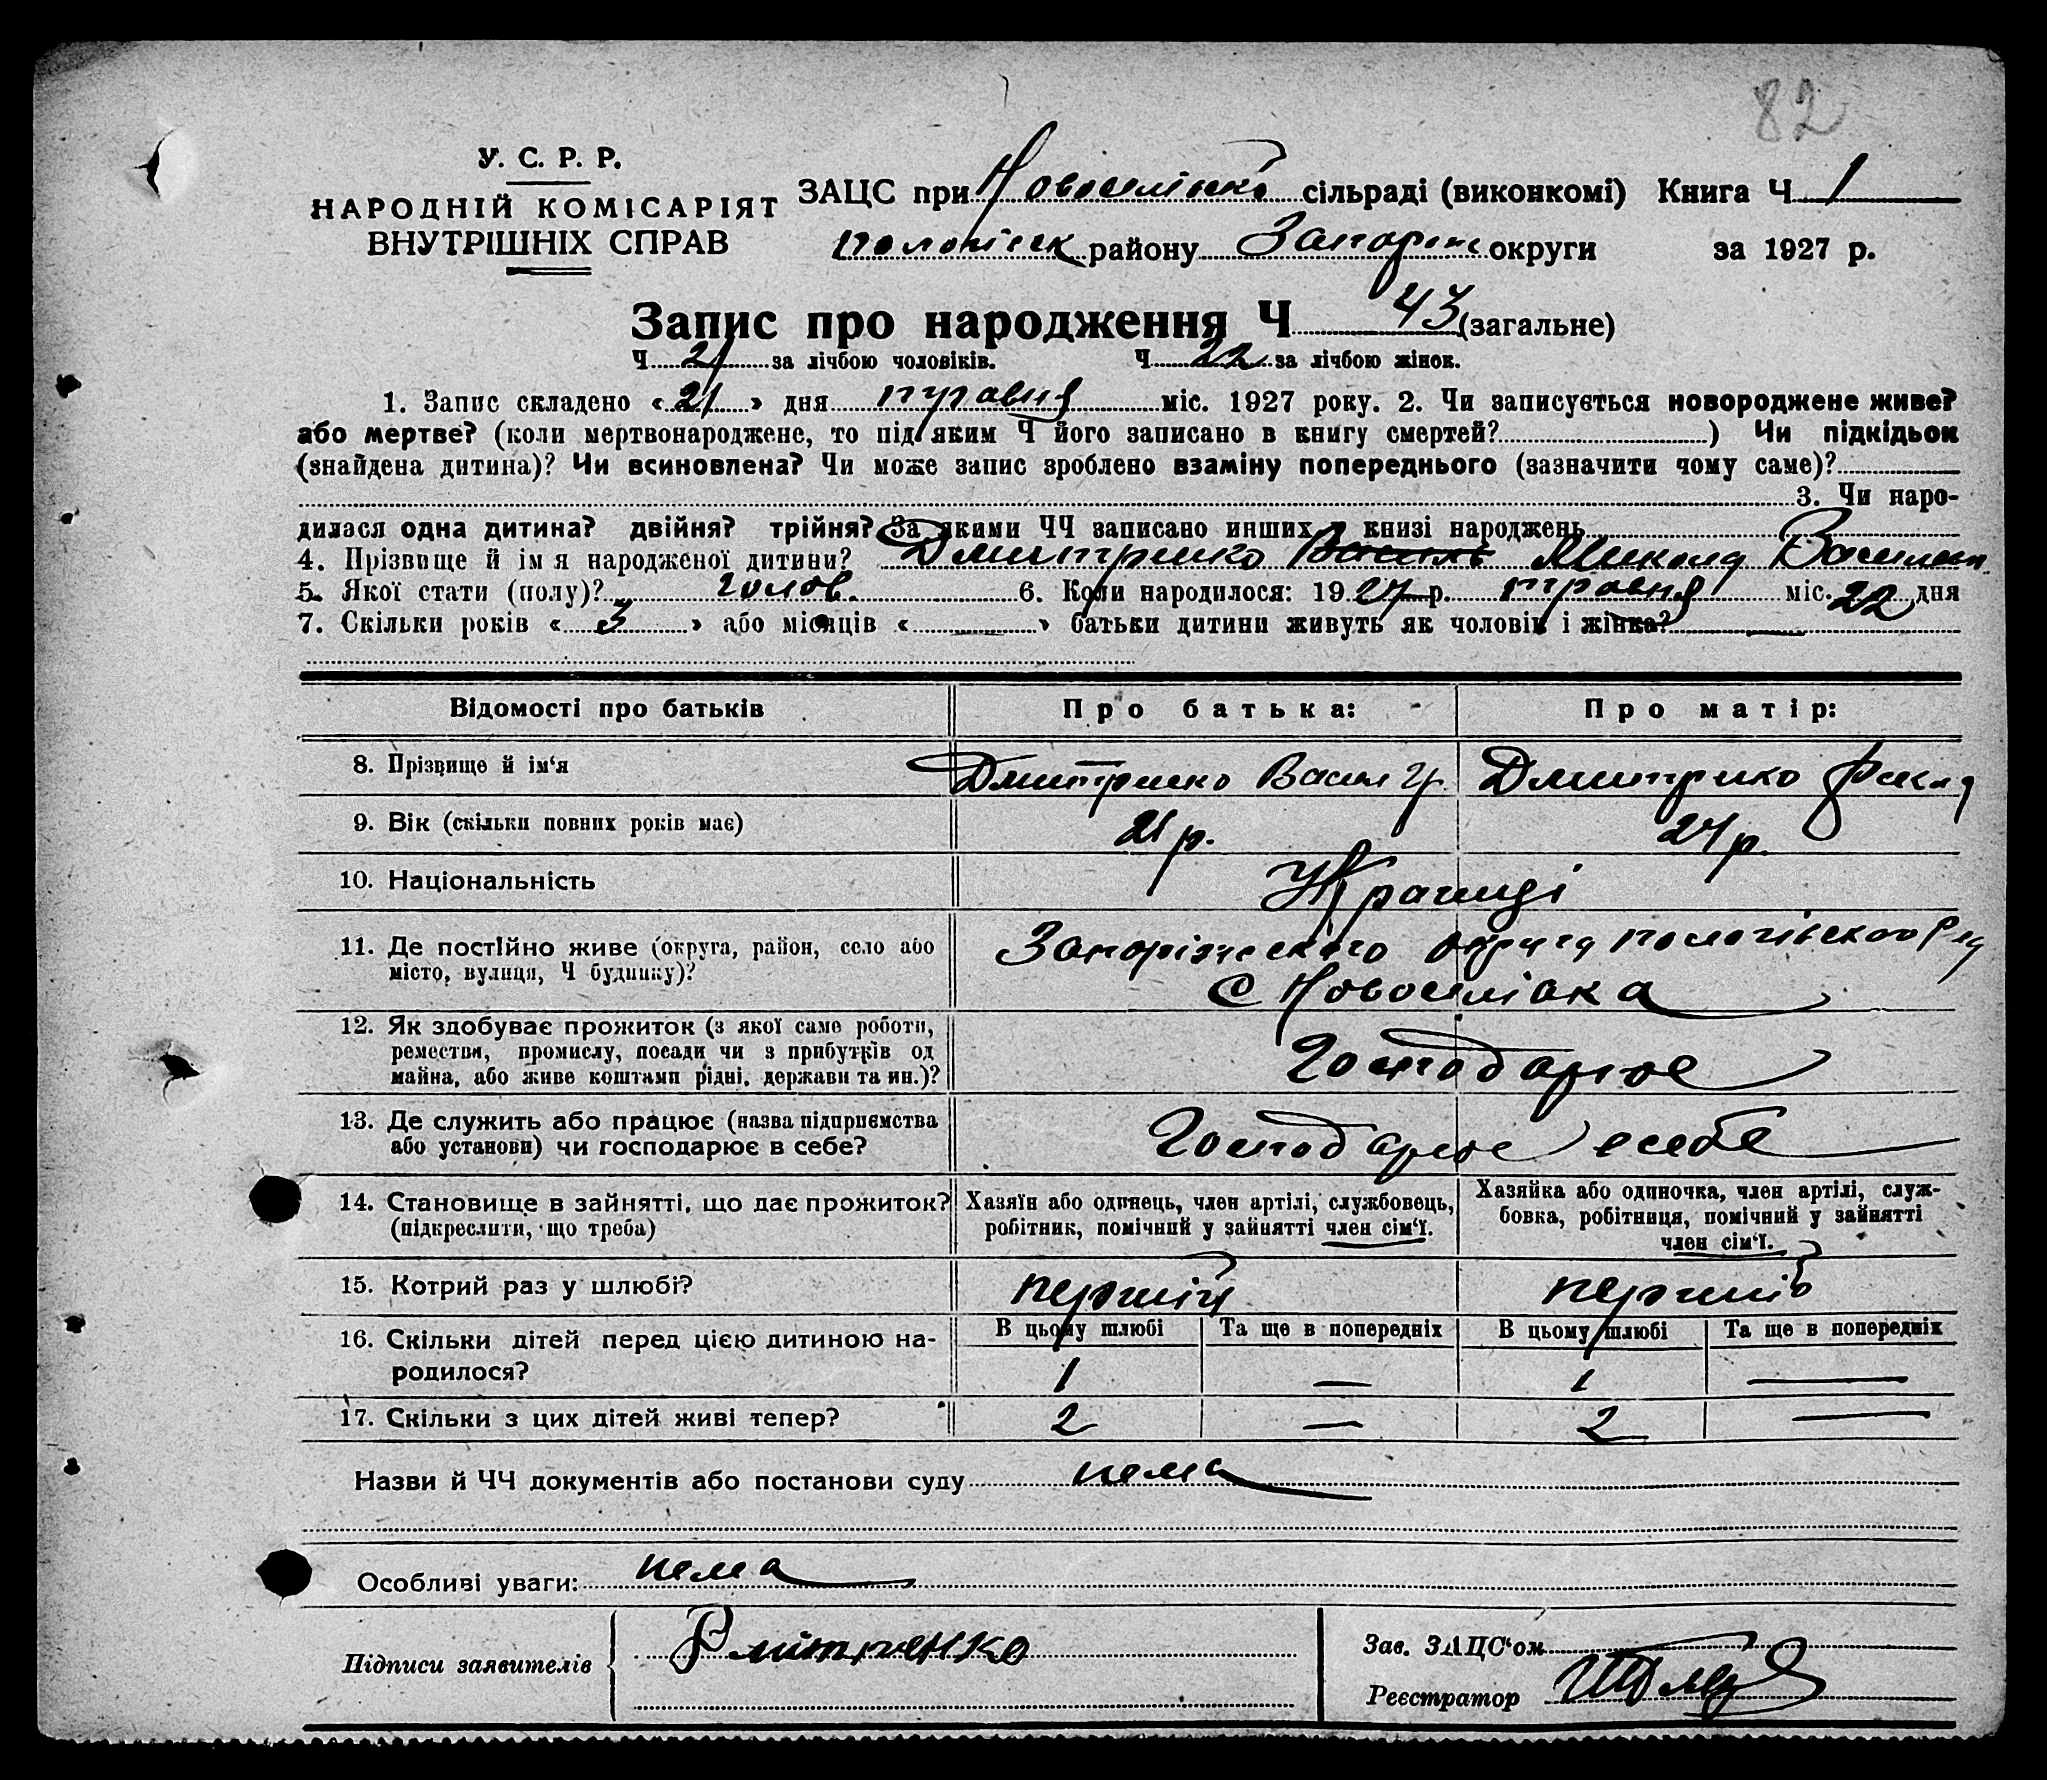 82
У. С. Р. Р.
НАРОДНІЙ КОМІСАРІЯТ
ВНУТРІШНІХ СПРАВ
ЗАЦС при Новосилівко сільраді (виконкомі) Книга Ч 1
Пологівск району Запоріж округи за 1927 р.
Запис про народження Ч 43 (загальне)
Ч 21 за лічбою чоловіків. Ч 22 за лічбою жінок.
1. Запис складено « 21 » дня травня міс. 1927 року. 2. Чи записується новороджене живе?
або мертве? (коли мертвонароджене, то під яким Ч його записано в книгу смертей? ) Чи підкідьок
(знайдена дитина)? Чи всиновлена? Чи може запис зроблено взаміну попереднього (зазначити чому саме)?
3. Чи наро-
дилася одна дитина? двійня? трійня? За якими ЧЧ записано инших в книзі народжень
4. Прізвище й ім я народженої дитини? Дмитренко Василь Микола Василев
5. Якої стати (полу)? чолов. 6. Коли народилося: 1927 р. травня міс. 22 дня
7. Скільки років « 3 » або місяців « — » батьки дитини живуть як чоловік і жінка? —
Відомості про батьків Про батька: Про матір:
8. Прізвище й ім‘я Дмитренко Васил Гр. Дмитренко
9. Вік (скільки повних років має) 21 р. 24 р.
10. Національність Українці
11. Де постійно живе (округа, район, село або Запорізського округа Пологівского
місто, вулиця, Ч будинку)? С Новоселівка
12. Як здобуває прожиток (з якої саме роботи,
ремества, промислу, посади чи з прибутків од
майна, або живе коштами рідні, держави та ин.)? Господарює
13. Де служить або працює (назва підприємства
або установи) чи господарює в себе? Господарює в себе
14. Становище в зайнятті, що дає прожиток? Хазяїн або одинець, член артілі, службовець, Хазяйка або одиночка, член артілі, служ-
(підкреслити, що треба) робітник, помічний у зайнятті член сім‘ї. бовка, робітниця, помічний у зайнятті
член сім‘ї.
15. Котрий раз у шлюбі? перший перший
16. Скільки дітей перед цією дитиною на- В цьому шлюбі Та ще в попередніх В цьому шлюбі Та ще в попередніх
родилося? 1 — 1 —
17. Скільки з цих дітей живі тепер? 2 — 2 —
Назви й ЧЧ документів або постанови суду нема
Особливі уваги: нема
Підписи заявителів Дмітренко
Зав. ЗАЦС‘ом
Реєстратор